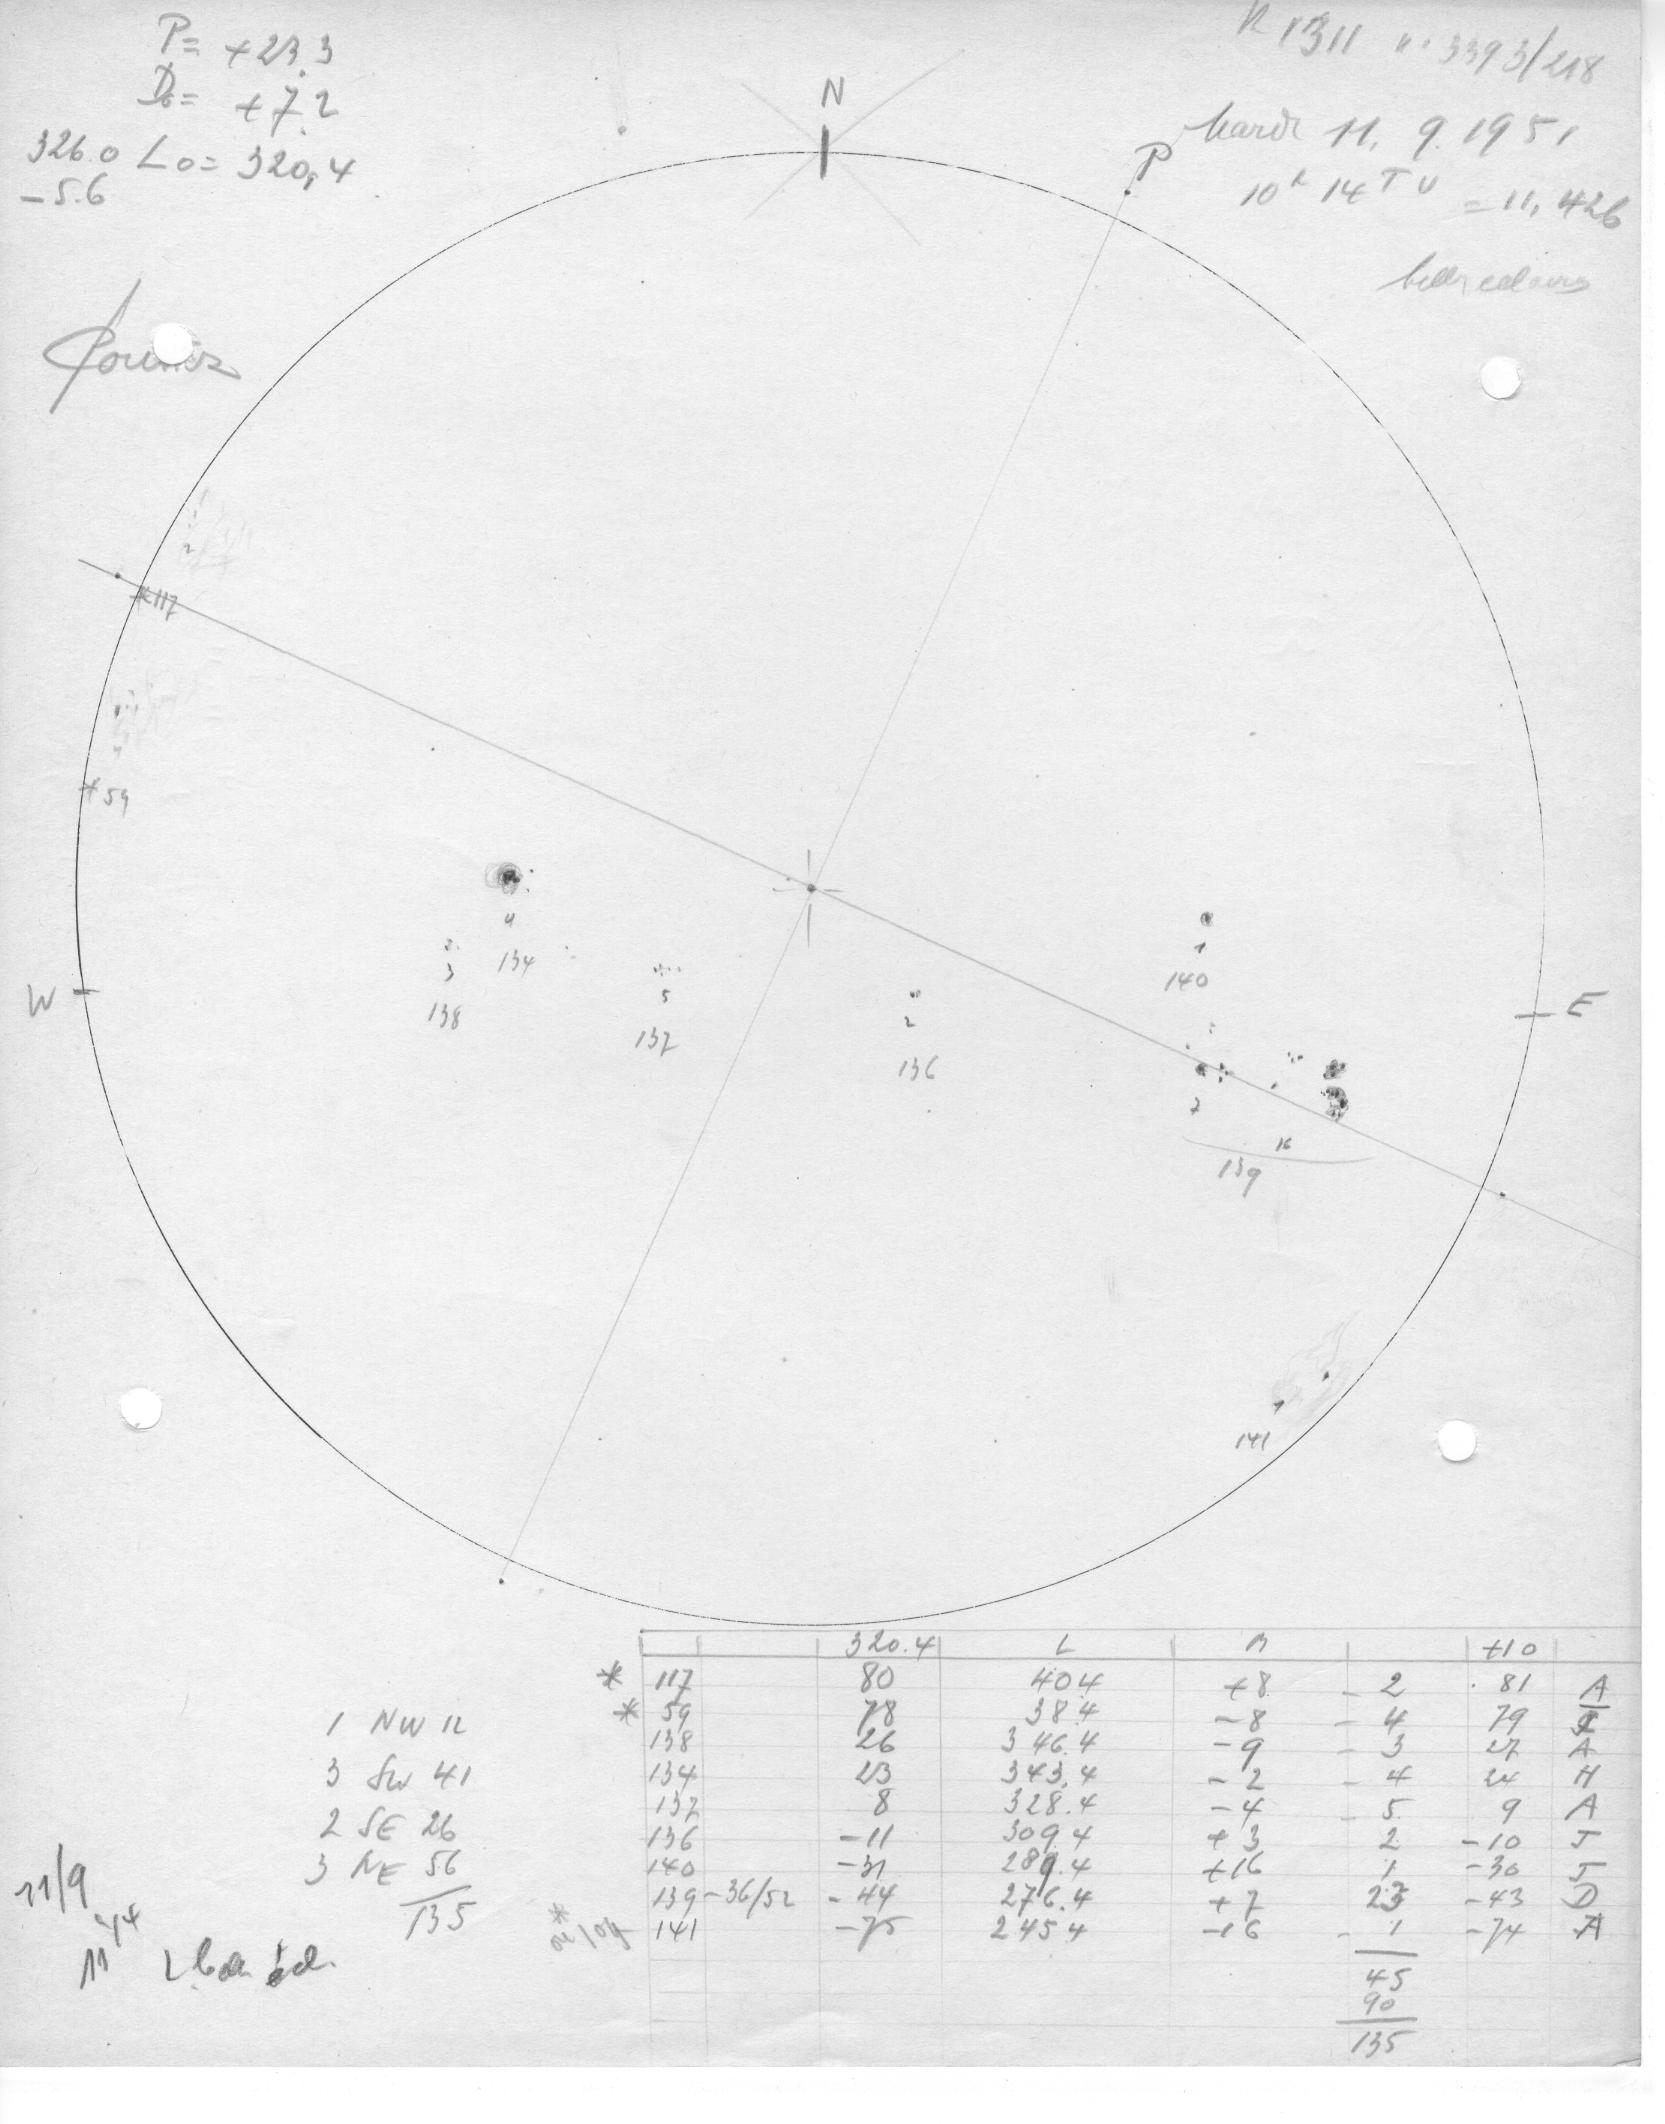 P= +23.3
D₀= +7.2
326.0 L₀= 320,4
-5.6
R 1311 n° 3393/218
Mardi 11. 9. 1951
10h 14 TU = 11,426
N
P
*117
2
* 59
W
E
4
134
3
138
5
137
2
136
1
140
7
16
139
1
141
320.4 L B +10
* 117 80 404 +8 - 2 81 A
* 59 78 38.4 -8 - 4 79
138 26 346.4 -9 - 3 27 A
134 23 343.4 -2 - 4 24 H
137 8 328.4 -4 - 5 9 A
136 -11 309.4 +3 2 -10 J
140 -31 289.4 +16 1 -30 J
139 -36/52 -44 276.4 +7 23 -43 D
* 141 -75 245.4 -16 - 1 -74 A
45
90
135
1 NW 12
3 SW 41
2 SE 26
3 NE 56
135
11/9